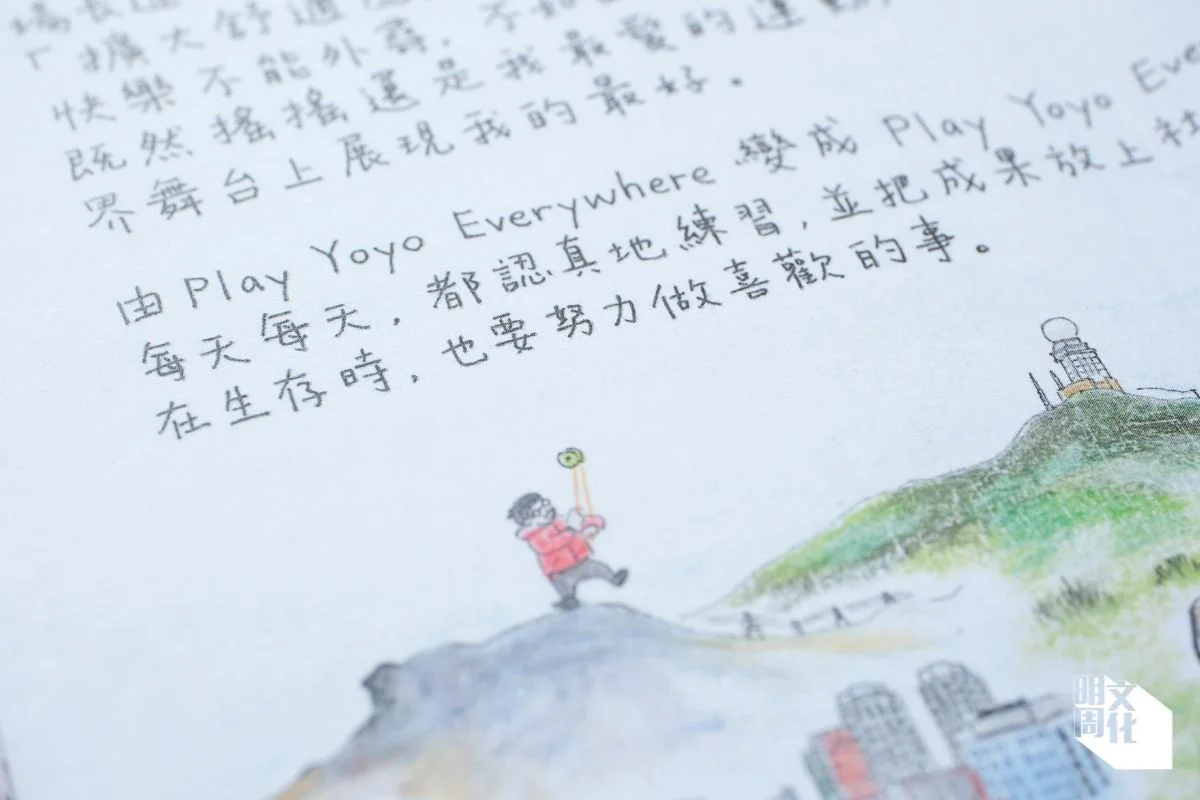 「擴大舒適
快樂不能外尋,不
既然搖搖還是我最愛的運動,
界舞台上展現我的最好。
由 Play Yoyo Everywhere 變成 Play Yoyo
每天每天,都認真地練習,並把成果放上社
在生存時,也要努力做喜歡的事。
明周文化